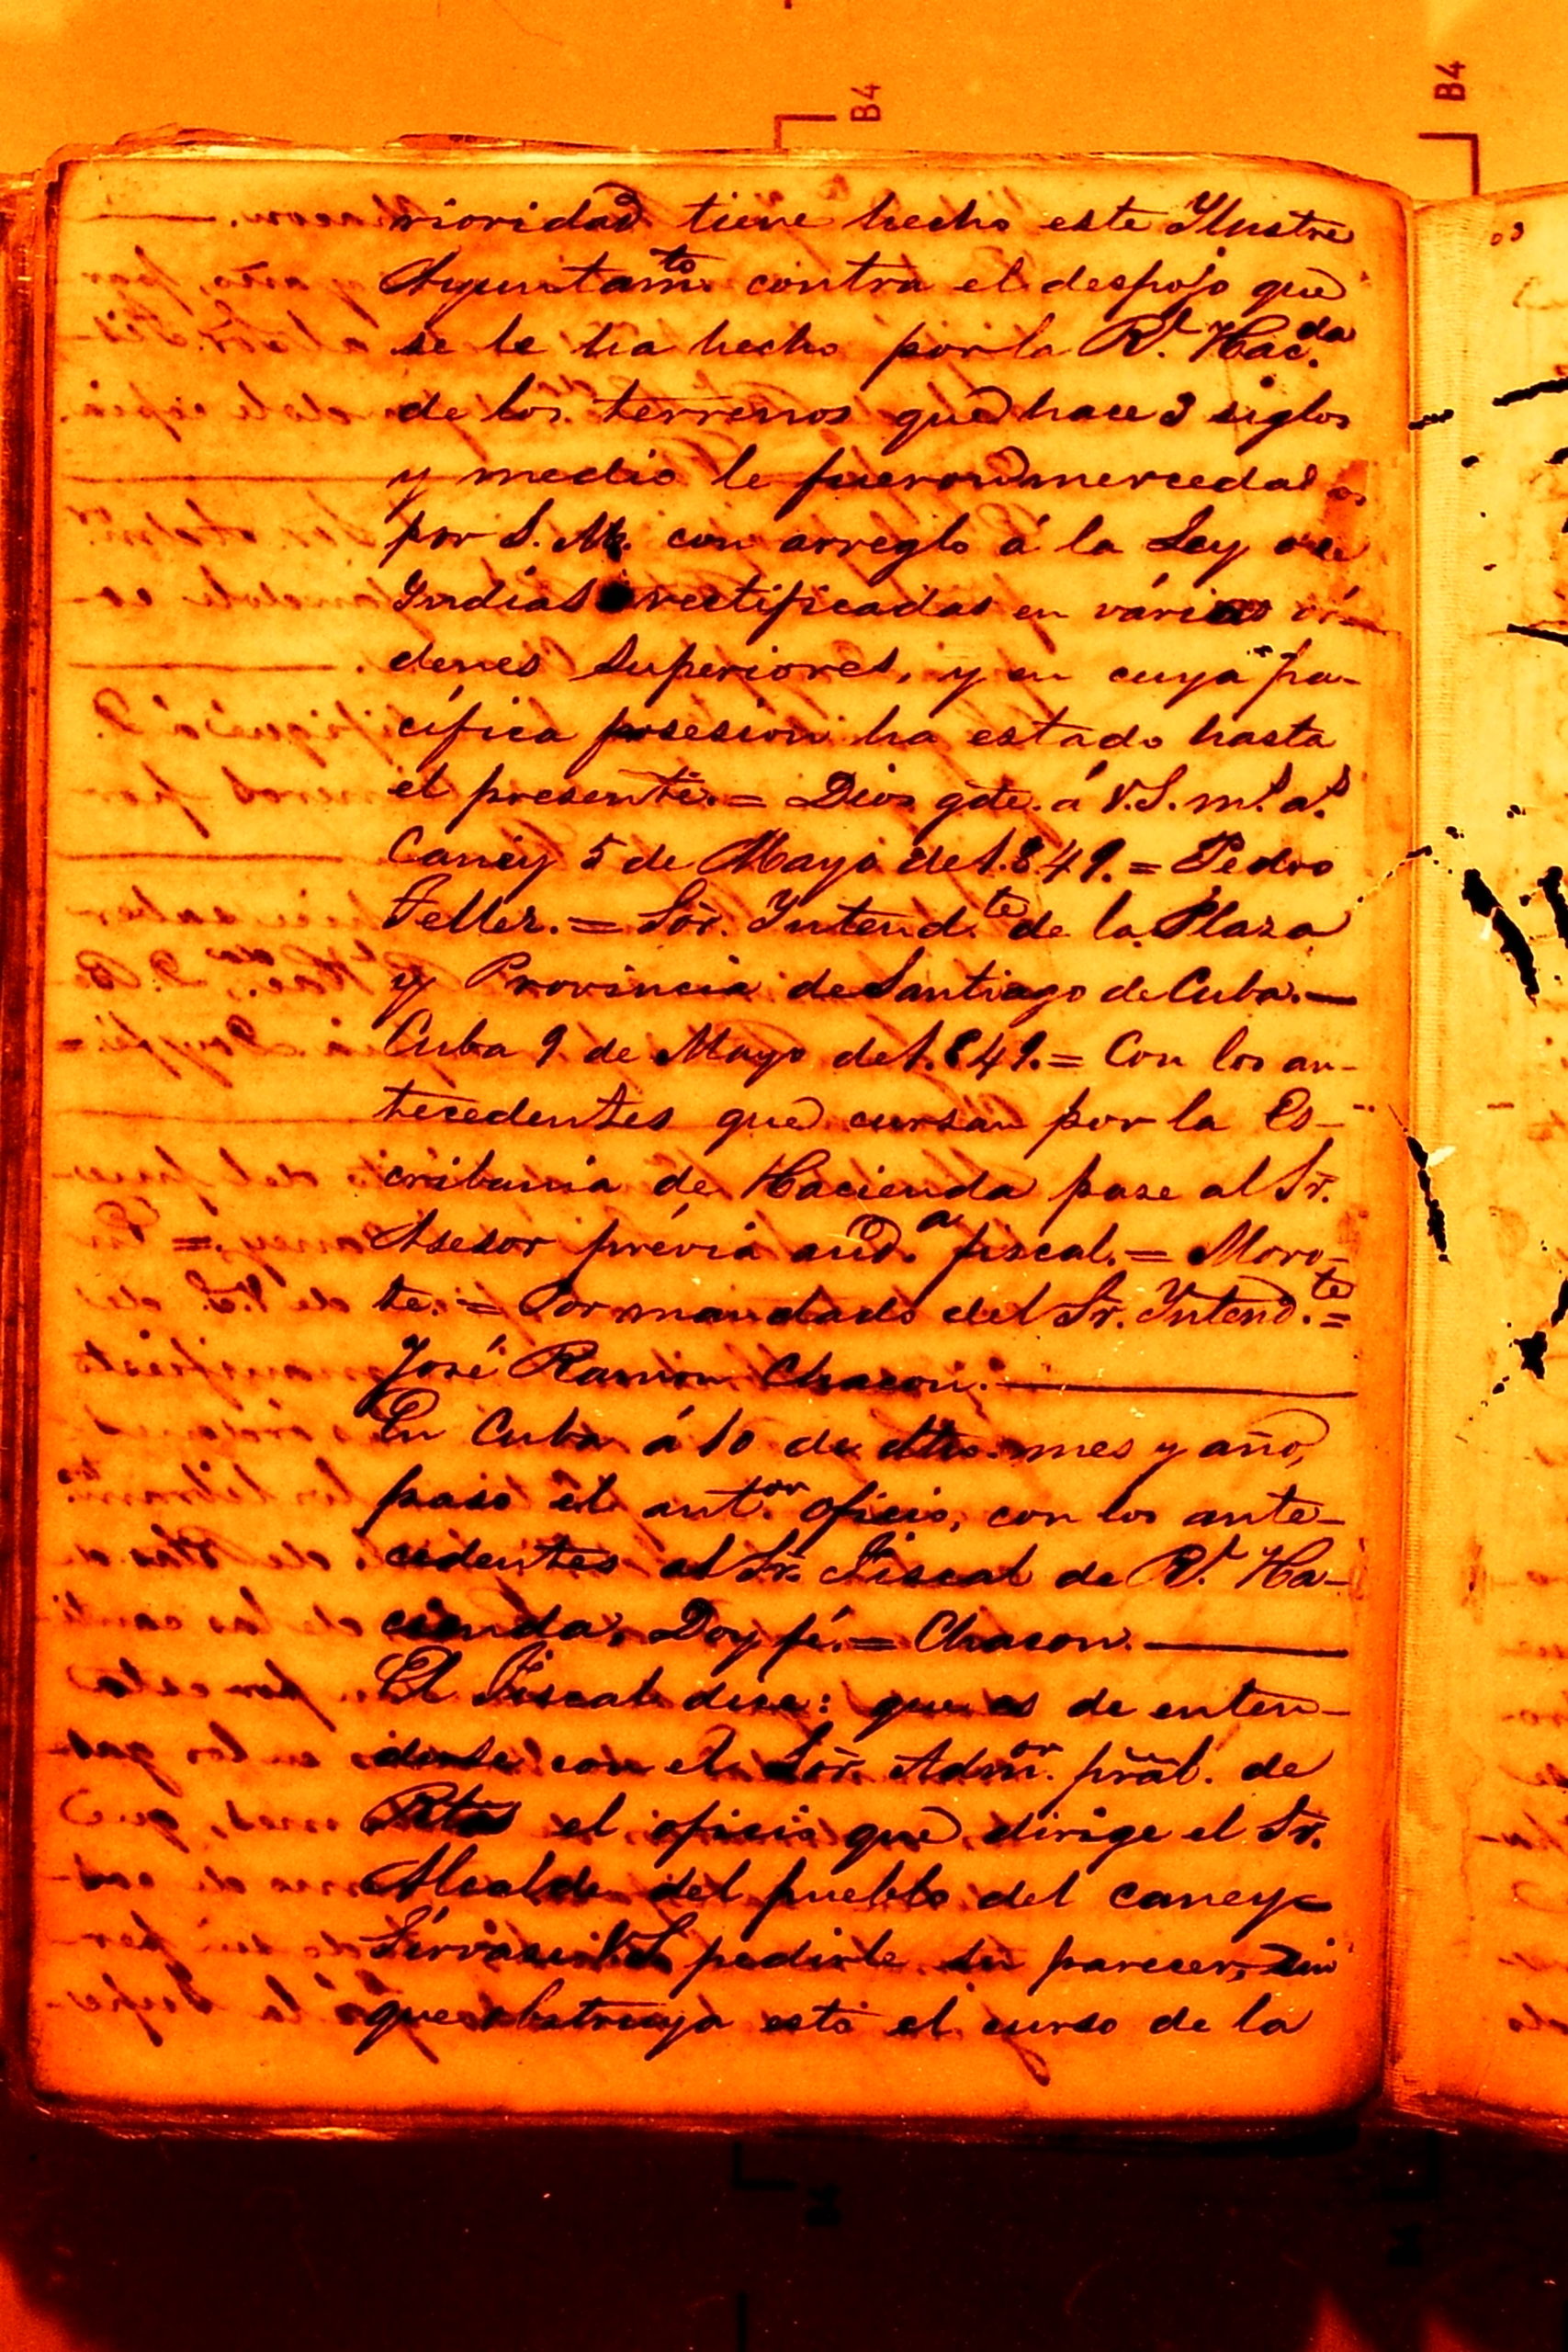 B4
B4
rioridad tiene hecho este Ylustre
Ayuntamto contra el despojo que
se le ha hecho por la Rl. Hac.da
de los terrenos que hace 3 siglos
y medio le fueron mercedados
por S. M. con arreglo á la Ley de
Yndias rectificadas en várias ór-
denes superiores, y en cuya pa-
cífica posesion ha estado hasta
el presente. = Dios gde. á V.S. ms. as.
Caney 5 de Mayo de 1.849. = Pedro
Teller. = Sõr. Yntend.te de la Plaza
y Provincia de Santiago de Cuba. —
Cuba 9 de Mayo de 1.849. = Con los an-
tecedentes que cursan por la Es-
cribania de Hacienda pase al Sr.
Asesor prévia aud.a fiscal. = Moro-
te. = Por mandado del Sr. Yntend.te =
José Ramon Chacon. —
En Cuba á 10 de dho. mes y año,
paso el ant.or oficio, con los ante-
cedentes al Sr. Fiscal de Rl. Ha-
cienda, Doy fé. = Chacon. —
El Fiscal dice: que es de enten-
derse con el Sõr. Admõr. prãl. de
Rtas el oficio que dirige el Sr.
Alcalde del pueblo del Caney
Sírvase V.S. pedirle su parecer, sin
que obstruya esto el curso de la